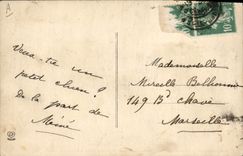 A
Veux-tu un
petit chien ?
De la part de
Mémé
Mademoiselle
Mireille Bellonne
149 Bd Chave
Marseille